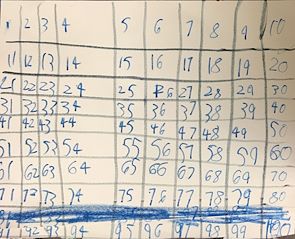 1 2 3 4 5 6 7 8 9 10
11 12 13 14 15 16 17 18 19 20
21 22 23 24 25 26 27 28 29 30
31 32 33 34 35 36 37 38 39 40
41 42 43 44 45 46 47 48 49 50
51 52 53 54 55 56 57 58 59 60
61 62 63 64 65 66 67 68 69 70
71 72 73 74 75 76 77 78 79 80
92 93 94 95 96 97 98 99 100